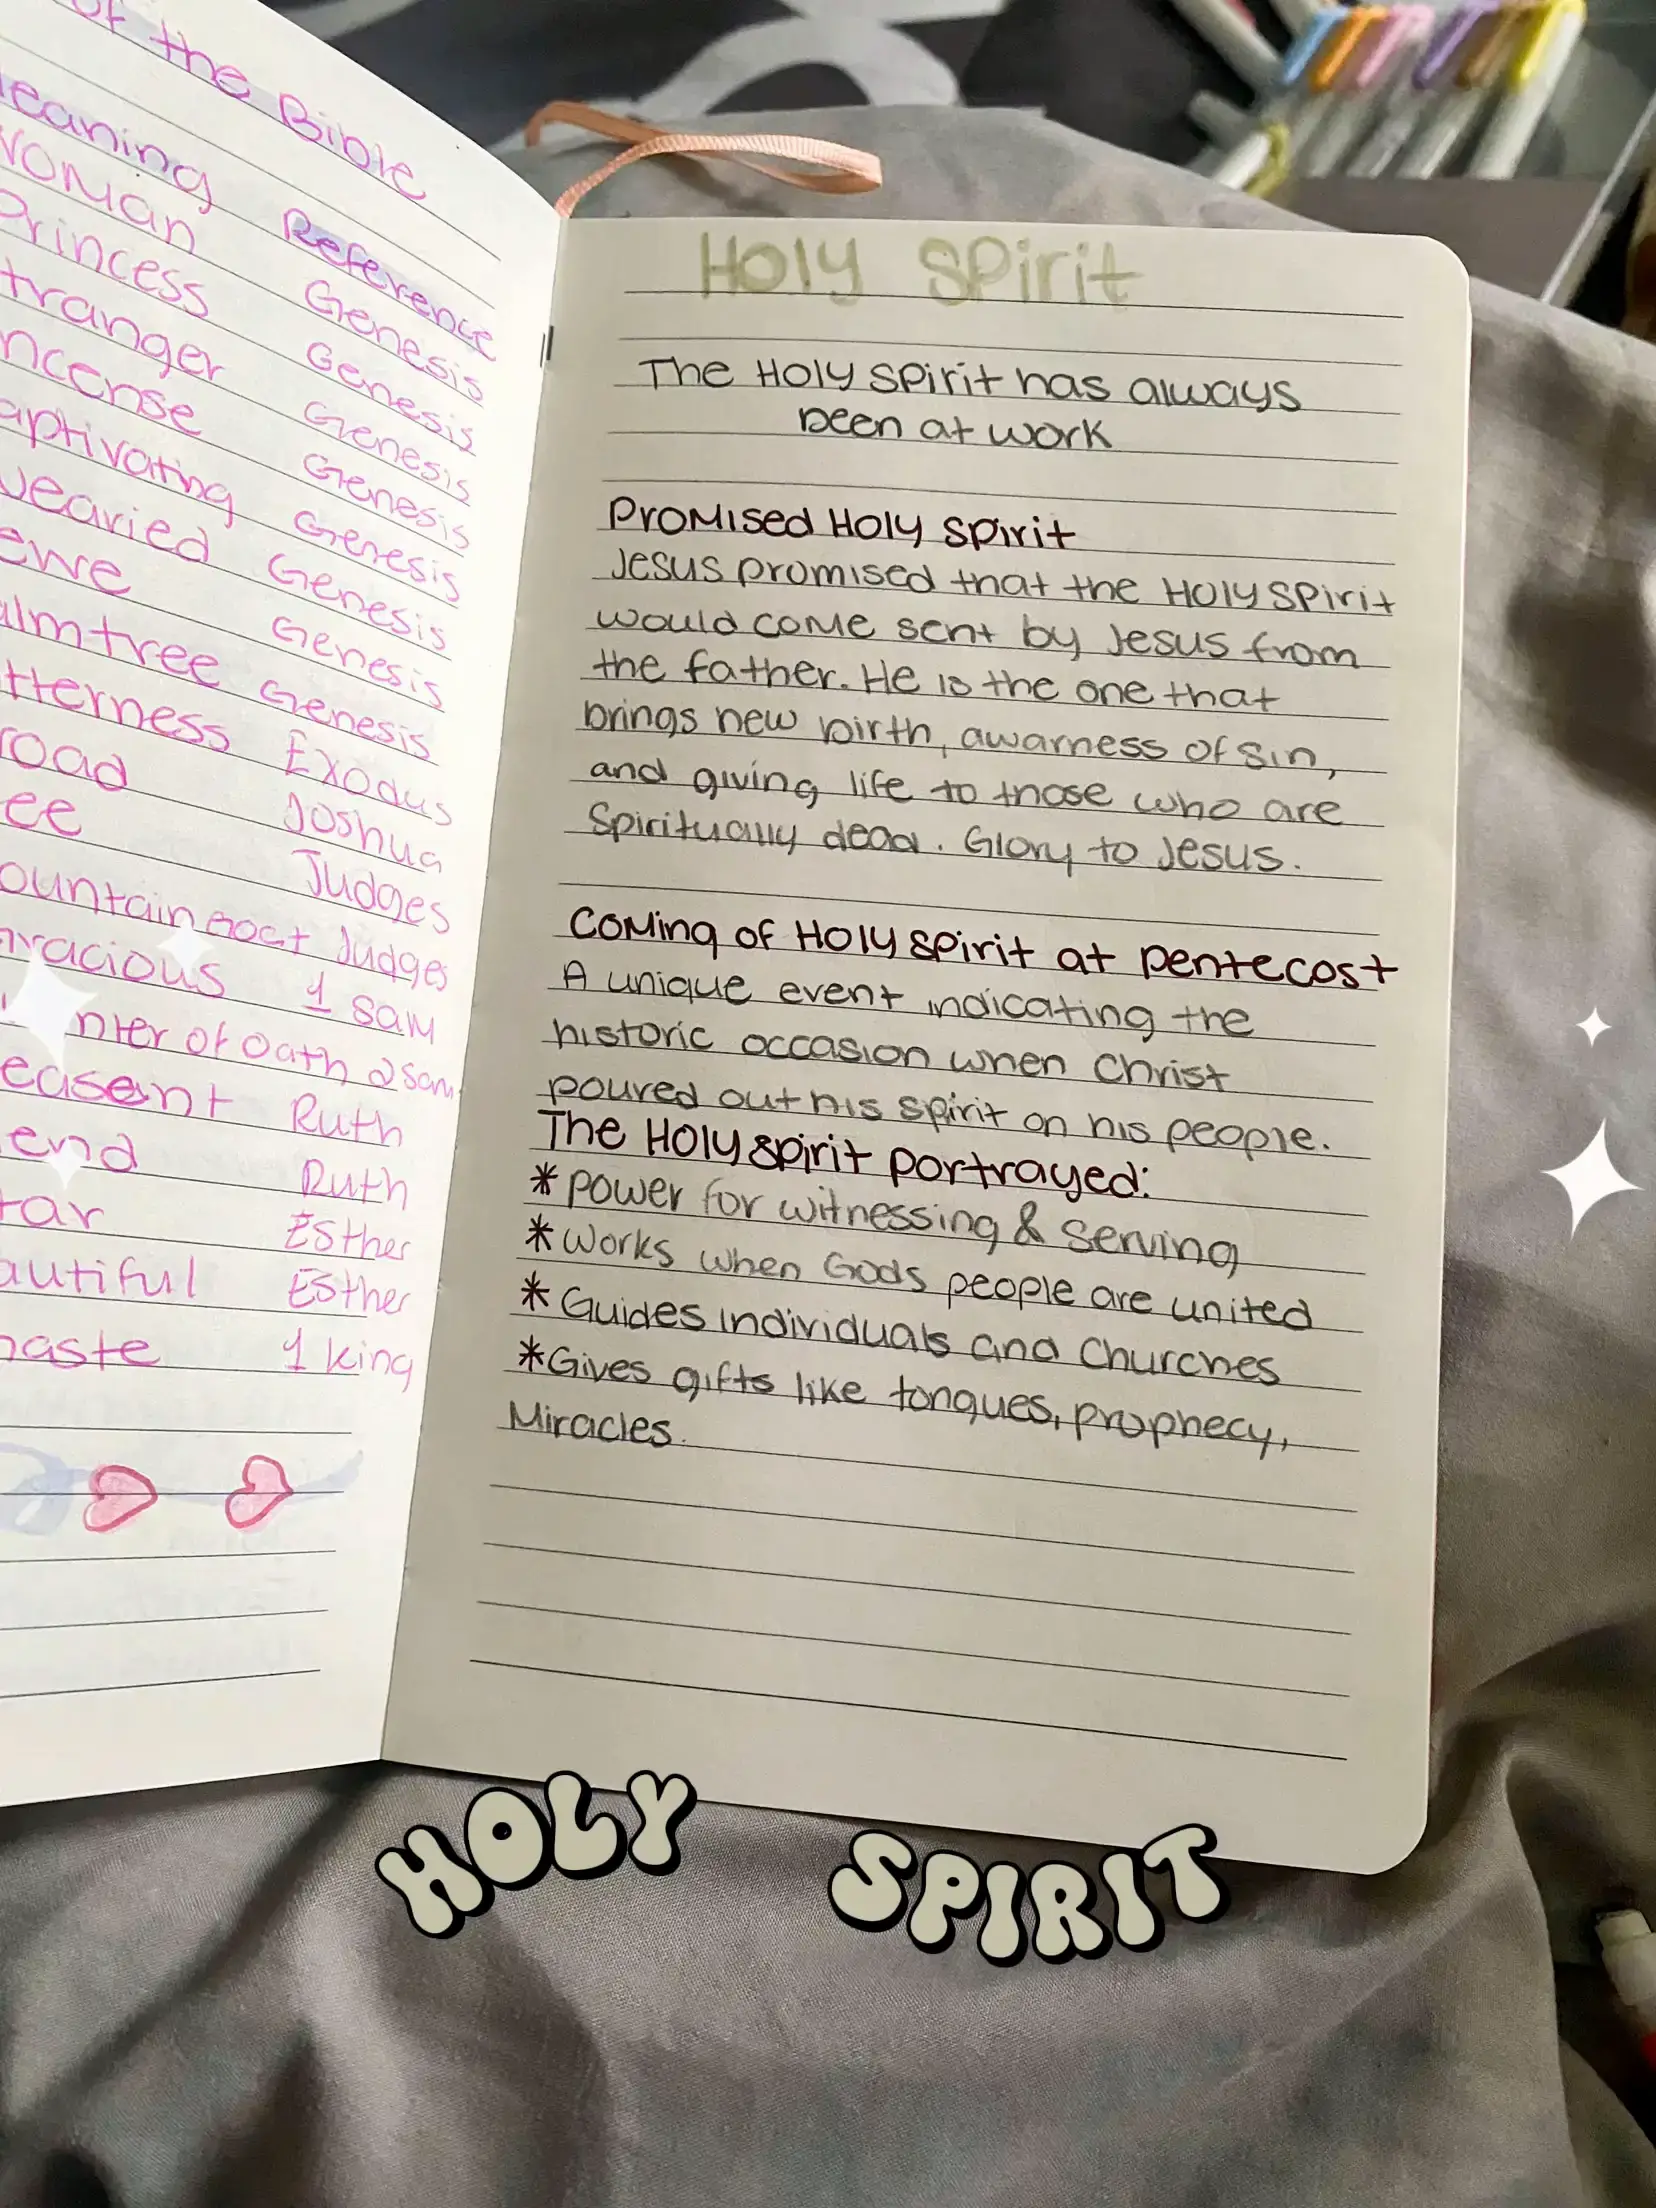 of the Bible
Reference
Woman Genesis
Princess Genesis
Genesis
Genesis
Genesis
Genesis
Genesis
Genesis
Exodus
Joshua
Judges
Judges
1 Sam
of Oath 2 Sam
Ruth
Ruth
Esther
Esther
1 king
Holy Spirit
The Holy Spirit has always
been at work
Promised Holy Spirit
Jesus promised that the Holy Spirit
would come sent by Jesus from
the father. He is the one that
brings new birth, awarness of sin,
and giving life to those who are
Spiritually dead. Glory to Jesus.
Coming of Holy Spirit at pentecost
A unique event indicating the
historic occasion when Christ
poured out his spirit on his people.
The Holy spirit portrayed:
*power for witnessing & serving
*Works when Gods people are united
*Guides individuals and Churches
*Gives gifts like tongues, prophecy,
Miracles.
HOLY SPIRIT